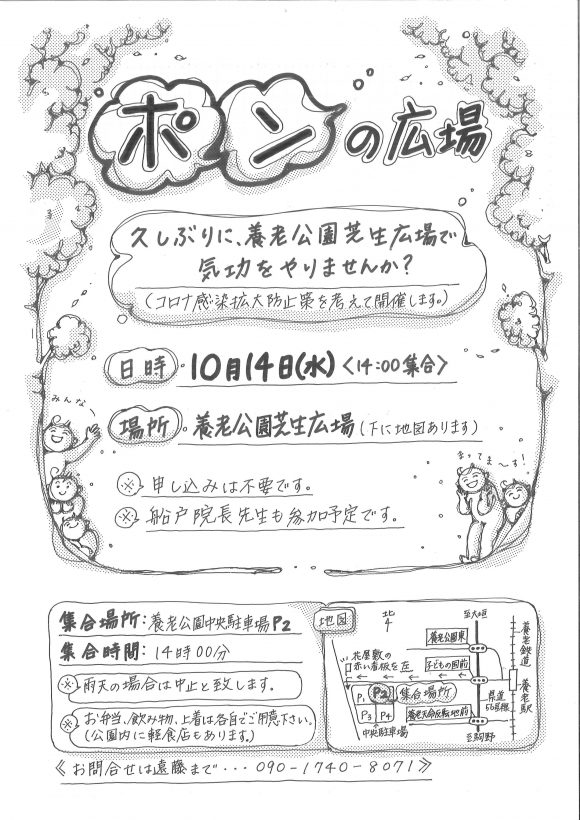 ポンの広場
久しぶりに、養老公園芝生広場で
気功をやりませんか?
(コロナ感染拡大防止策を考えて開催します。)
日時 10月14日(水)〈14:00集合〉
場所 養老公園芝生広場(下に地図あります)
みんな〜
まってま〜す!
※ 申し込みは不要です。
※ 船戸院長先生も参加予定です。
集合場所:養老公園中央駐車場P2
集合時間:14時00分
※ 雨天の場合は中止と致します。
※ お弁当、飲み物、上着は各自でご用意下さい。
(公園内に軽食店もあります。)
地図
北
4
至大垣
養老公園東
花屋敷の
赤い看板を左
子どもの国前
P1
P2
集合場所
P3
P4
養老天命反転地前
中央駐車場
県道
56号線
至駒野
養老鉄道
養老駅
《お問合せは遠藤まで・・・090-1740-8071》